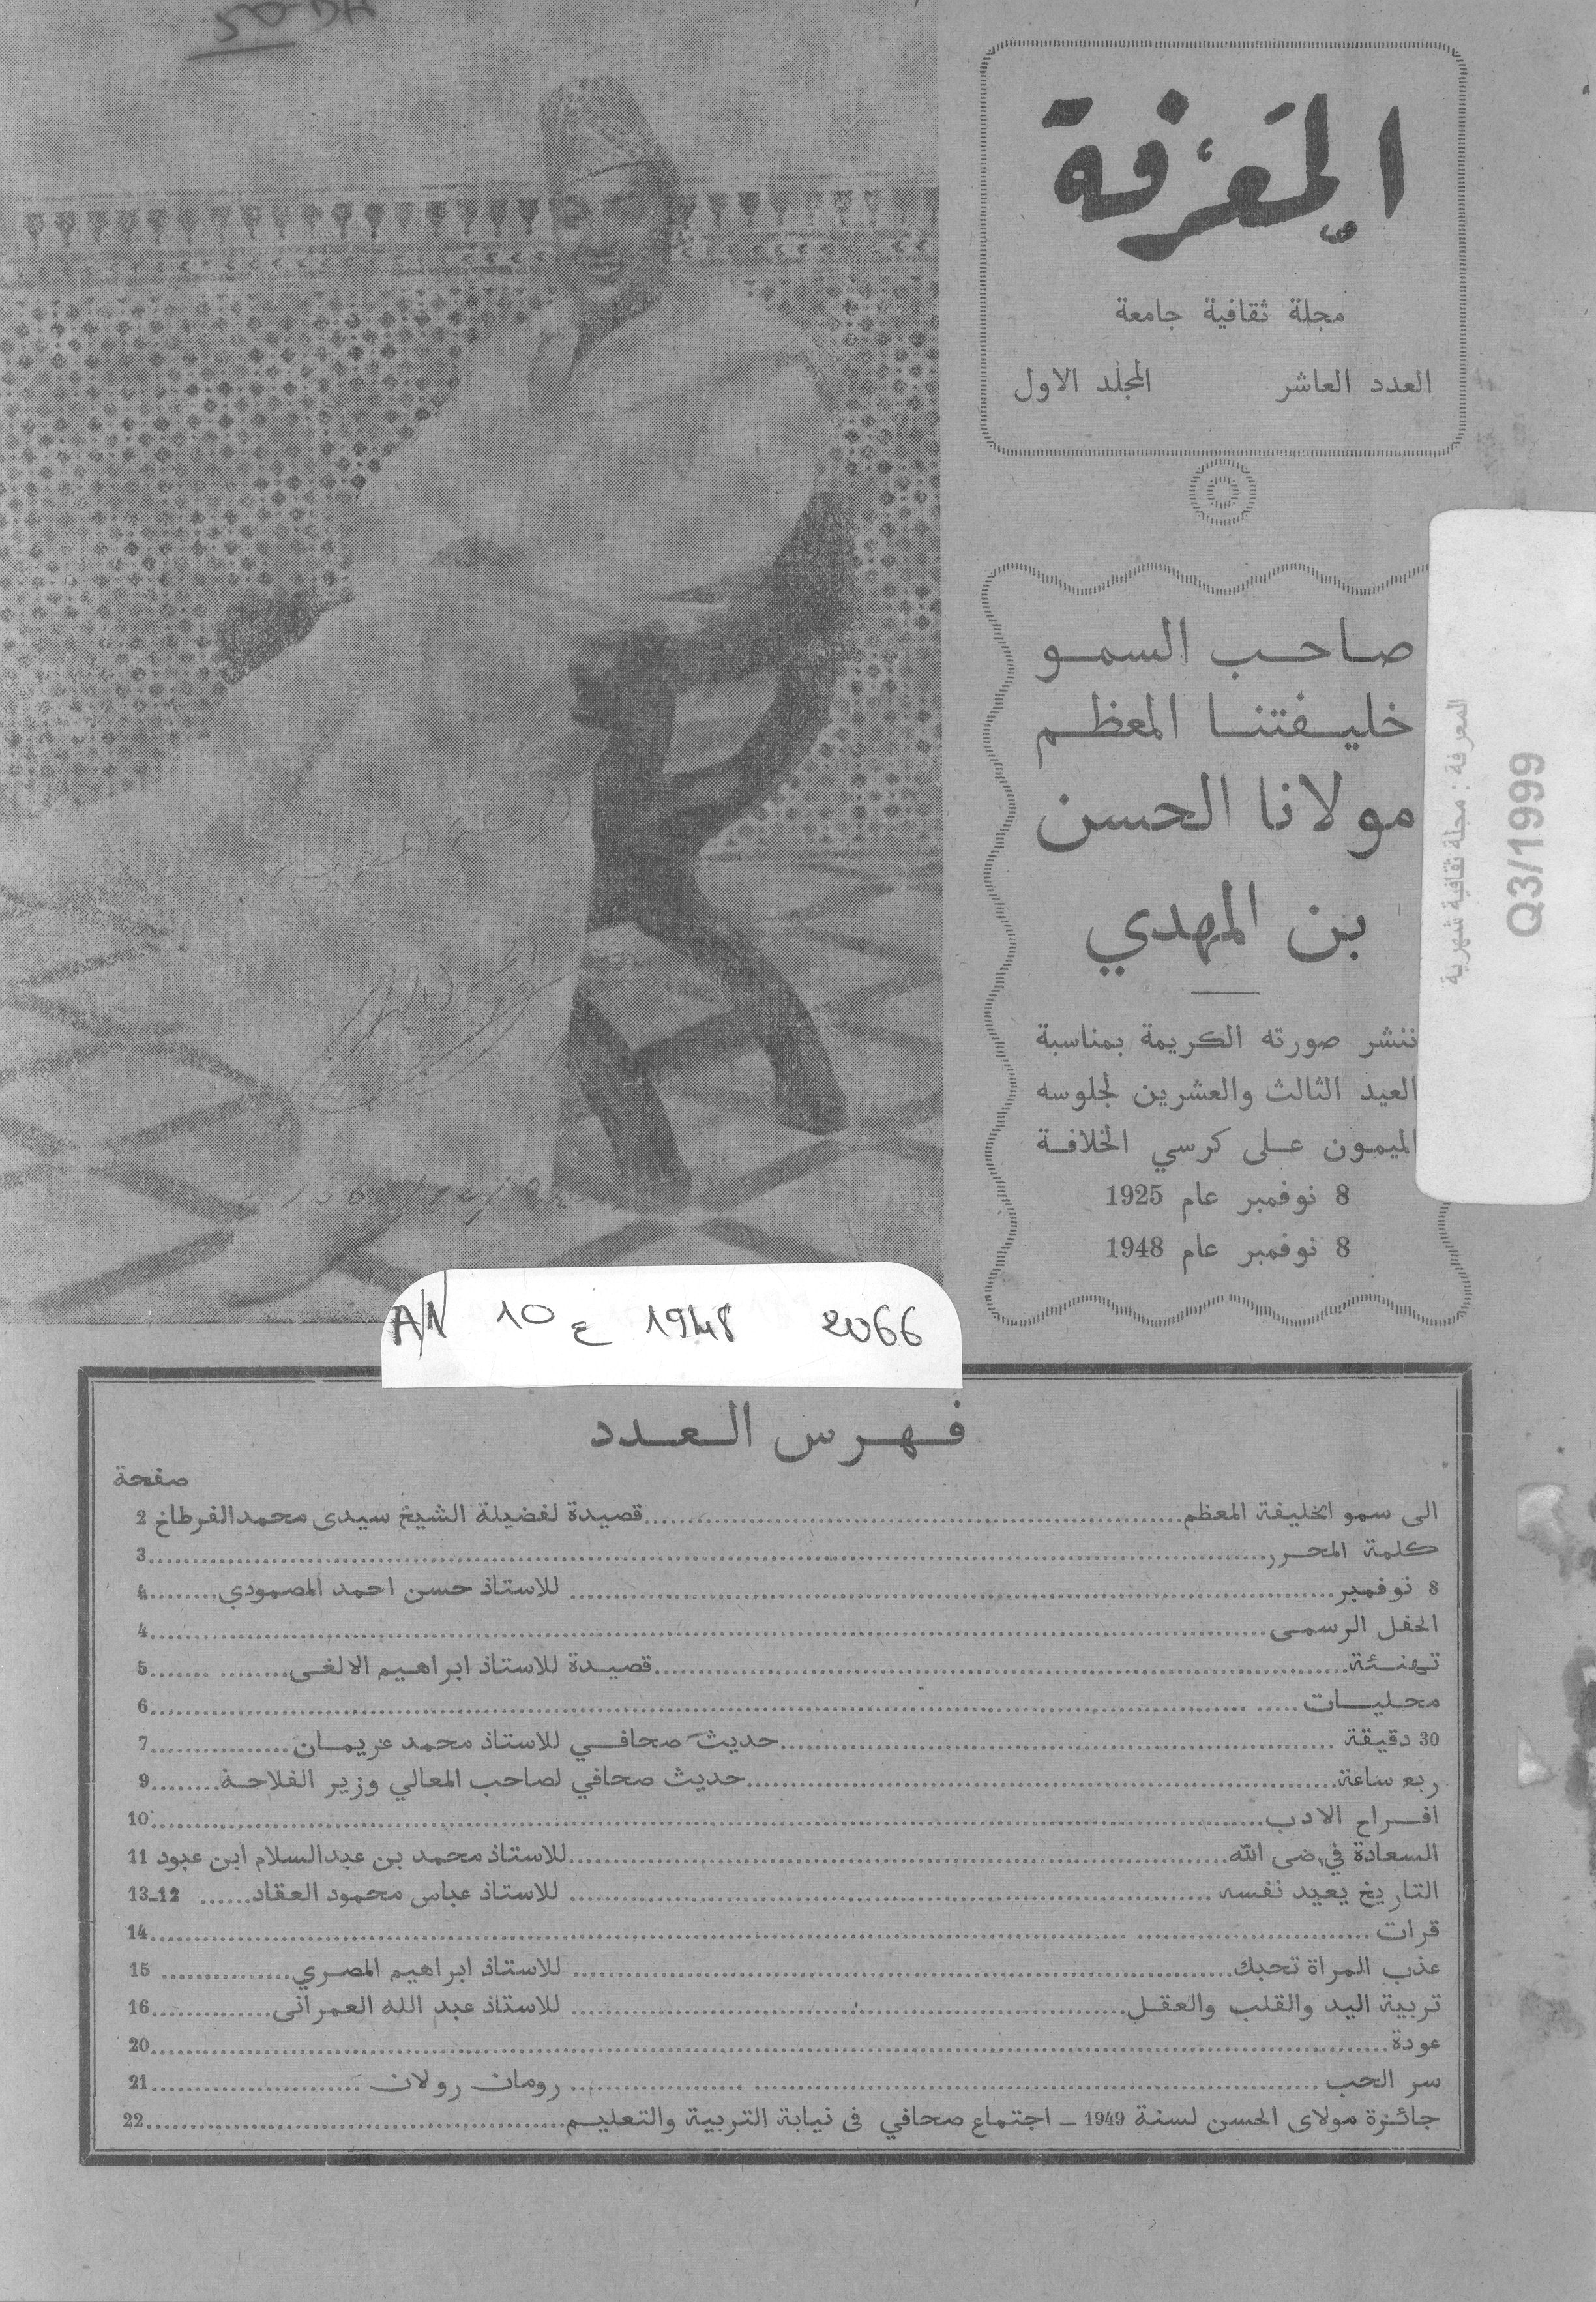 50 DH
المعرفة
مجلة ثقافية جامعة
العدد العاشر المجلد الاول
صاحب السمو
خليفتنا المعظم
مولانا الحسن
بن المهدي
ننشر صورته الكريمة بمناسبة
العيد الثالث والعشرين لجلوسه
الميمون على كرسي الخلافة
8 نوفمبر عام 1925
8 نوفمبر عام 1948
المعرفة : مجلة ثقافية شهرية
Q3/1999
A/N 10 ع 1948 2066
فهرس العدد
صفحة
الى سمو الخليفة المعظم..........قصيدة لفضيلة الشيخ سيدى محمدالفرطاخ 2
كلمة المحرر..........3
8 نوفمبر.......... للاستاذ حسن احمد المصمودي........4
الحفل الرسمى..........4
تهنئة..........قصيدة للاستاذ ابراهيم الالغى........5
محليات..........6
30 دقيقة ..........حديث صحافي للاستاذ محمد عزيمان..........7
ربع ساعة..........حديث صحافي لصاحب المعالي وزير الفلاحة........9
افراح الادب..........10
السعادة في رضى الله..........للاستاذ محمد بن عبدالسلام ابن عبود 11
التاريخ يعيد نفسه .......... للاستاذ عباس محمود العقاد...... 12-13
قرات ..........14
عذب المراة تحبك.......... للاستاذ ابراهيم المصري.......... 15
تربية اليد والقلب والعقل.......... للاستاذ عبد الله العمرانى..........16
عودة..........20
سر الحب .......... رومان رولان ..........21
جائزة مولاى الحسن لسنة 1949 - اجتماع صحافي فى نيابة التربية والتعليم..........22